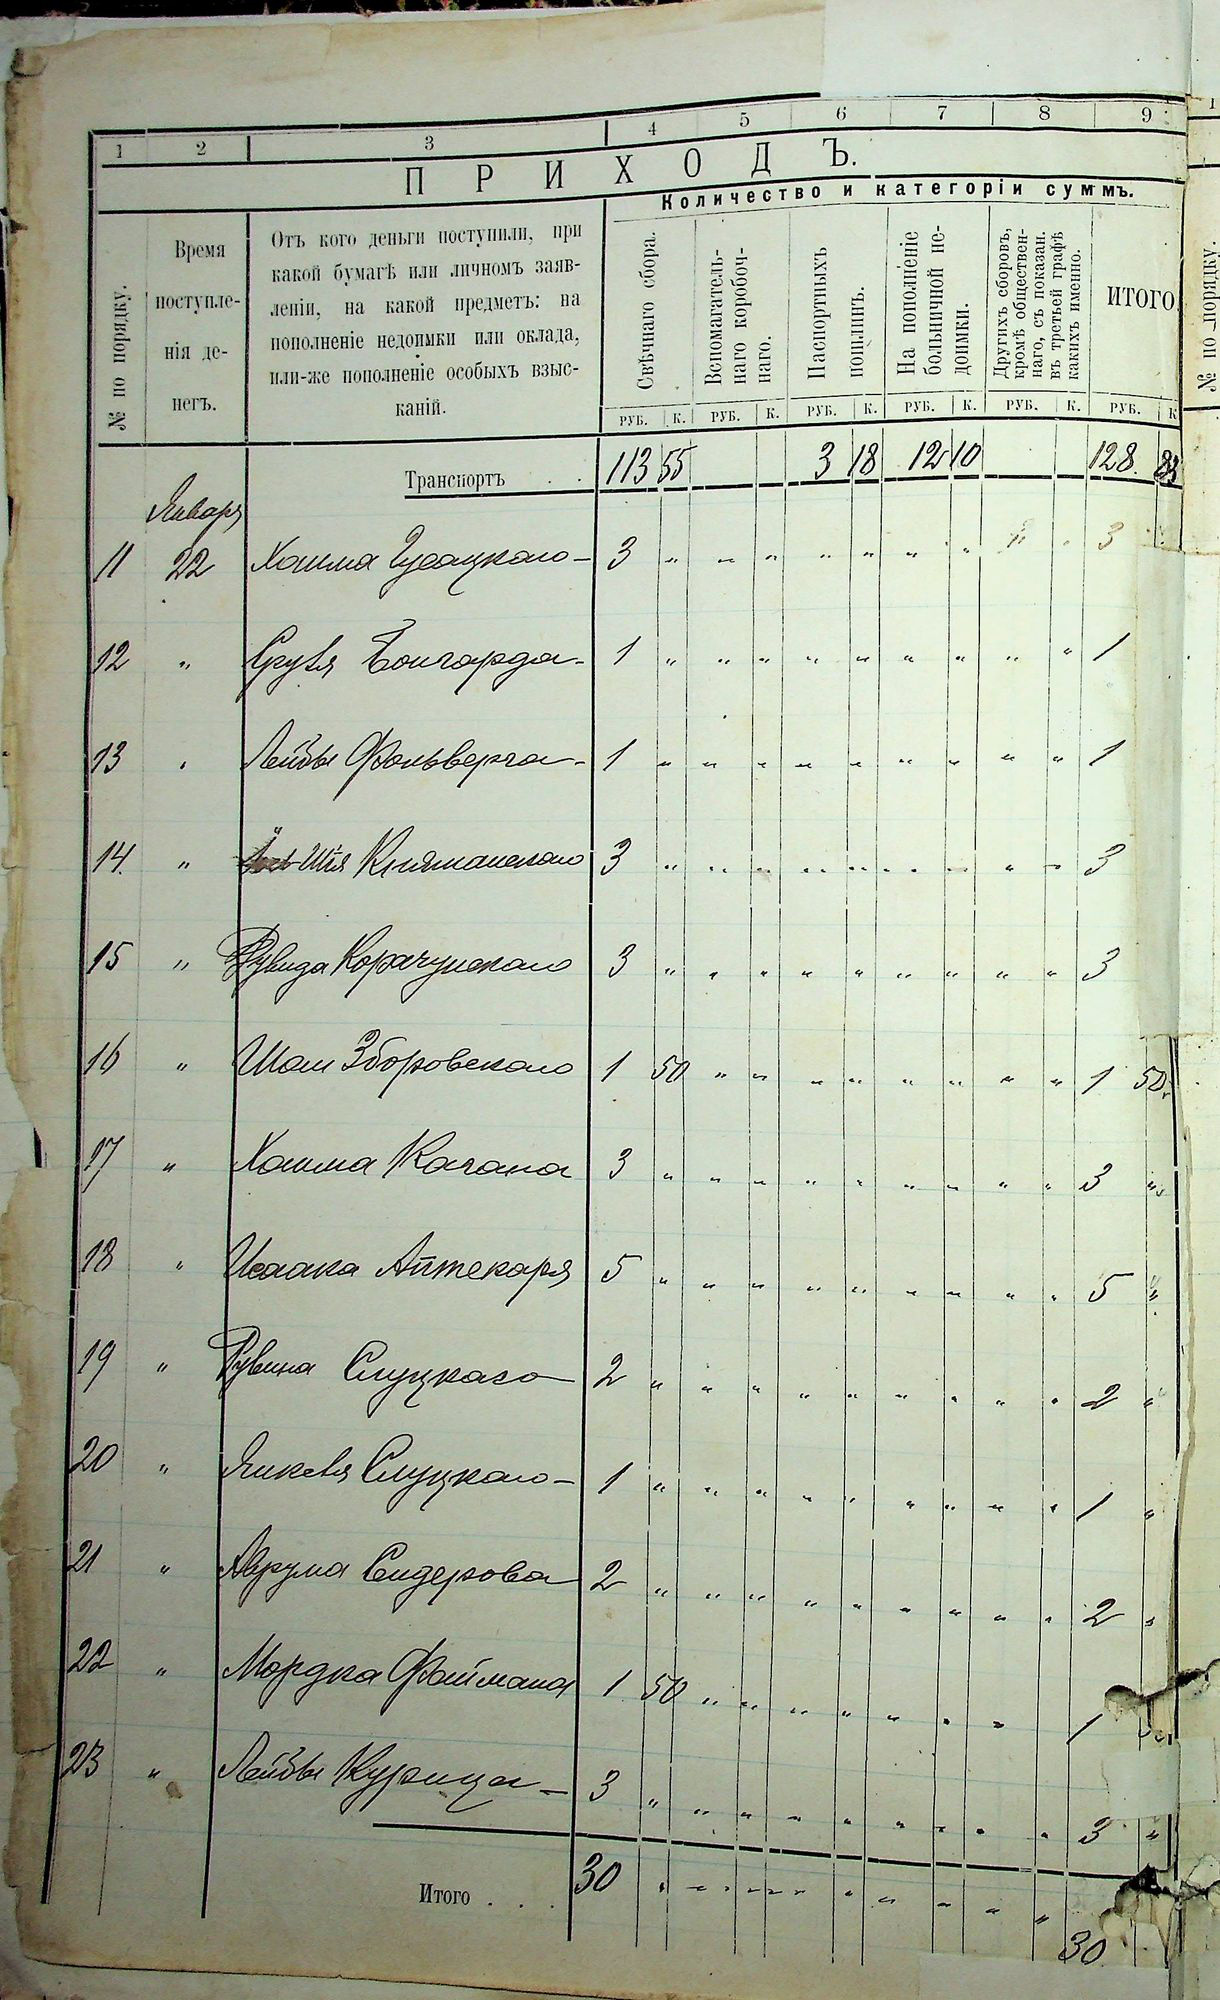 1 2 3 4 5 6 7 8 9
ПРИХОДЪ.
Количество и категоріи суммъ.
№ по порядку.
Время
поступле-
нія де-
негъ.
Отъ кого деньги поступили, при
какой бумагѣ или личномъ заяв-
леніи, на какой предметъ: на
пополненіе недоимки или оклада,
или-же пополненіе особыхъ взыс-
каній.
Свѣчнаго сбора.
Вспомагатель-
наго коробоч-
наго.
Паспортныхъ
пошлинъ.
На пополненіе
больничной не-
доимки.
Другихъ сборовъ,
кромѣ обществен-
наго, съ показан.
въ третьей графѣ
какихъ именно.
ИТОГО.
РУБ. К. РУБ. К. РУБ. К. РУБ. К. РУБ. К. РУБ. К
Транспортъ . . 113 55 3 18 12 10 128 83
Января
11 22 Хаима Гусацкаго - 3 " " " " " " " " " 3
12 " Сруля Бонгарда - 1 " " " " " " " " " 1
13 " Лейбы Фольверга - 1 " " " " " " " " " 1
14. " Шія 3 " " " " " " " " " 3
15 " Корачунскаго 3 " " " " " " " " " 3
16 " Шаи Зборовскаго 1 50 " " " " " " " " 1 50
17 " Хаима Кагана 3 " " " " " " " " " 3 "
18 " Исаака Аптекаря 5 " " " " " " " " " 5 "
19 " Рувина Слуцкаго 2 " " " " " " " " " 2 "
20 " Янкеля Слуцкаго - 1 " " " " " " " " " 1 "
21 " Аврума Сидерова 2 " " " " " " " " " 2 "
22 " Мордка Файмана 1 50 " " " " " " " 1
23 " Лейбы Курица - 3 " " " " " " " " " 3 "
Итого . . . 30 " " " " " " " " " 30
№ по порядку.